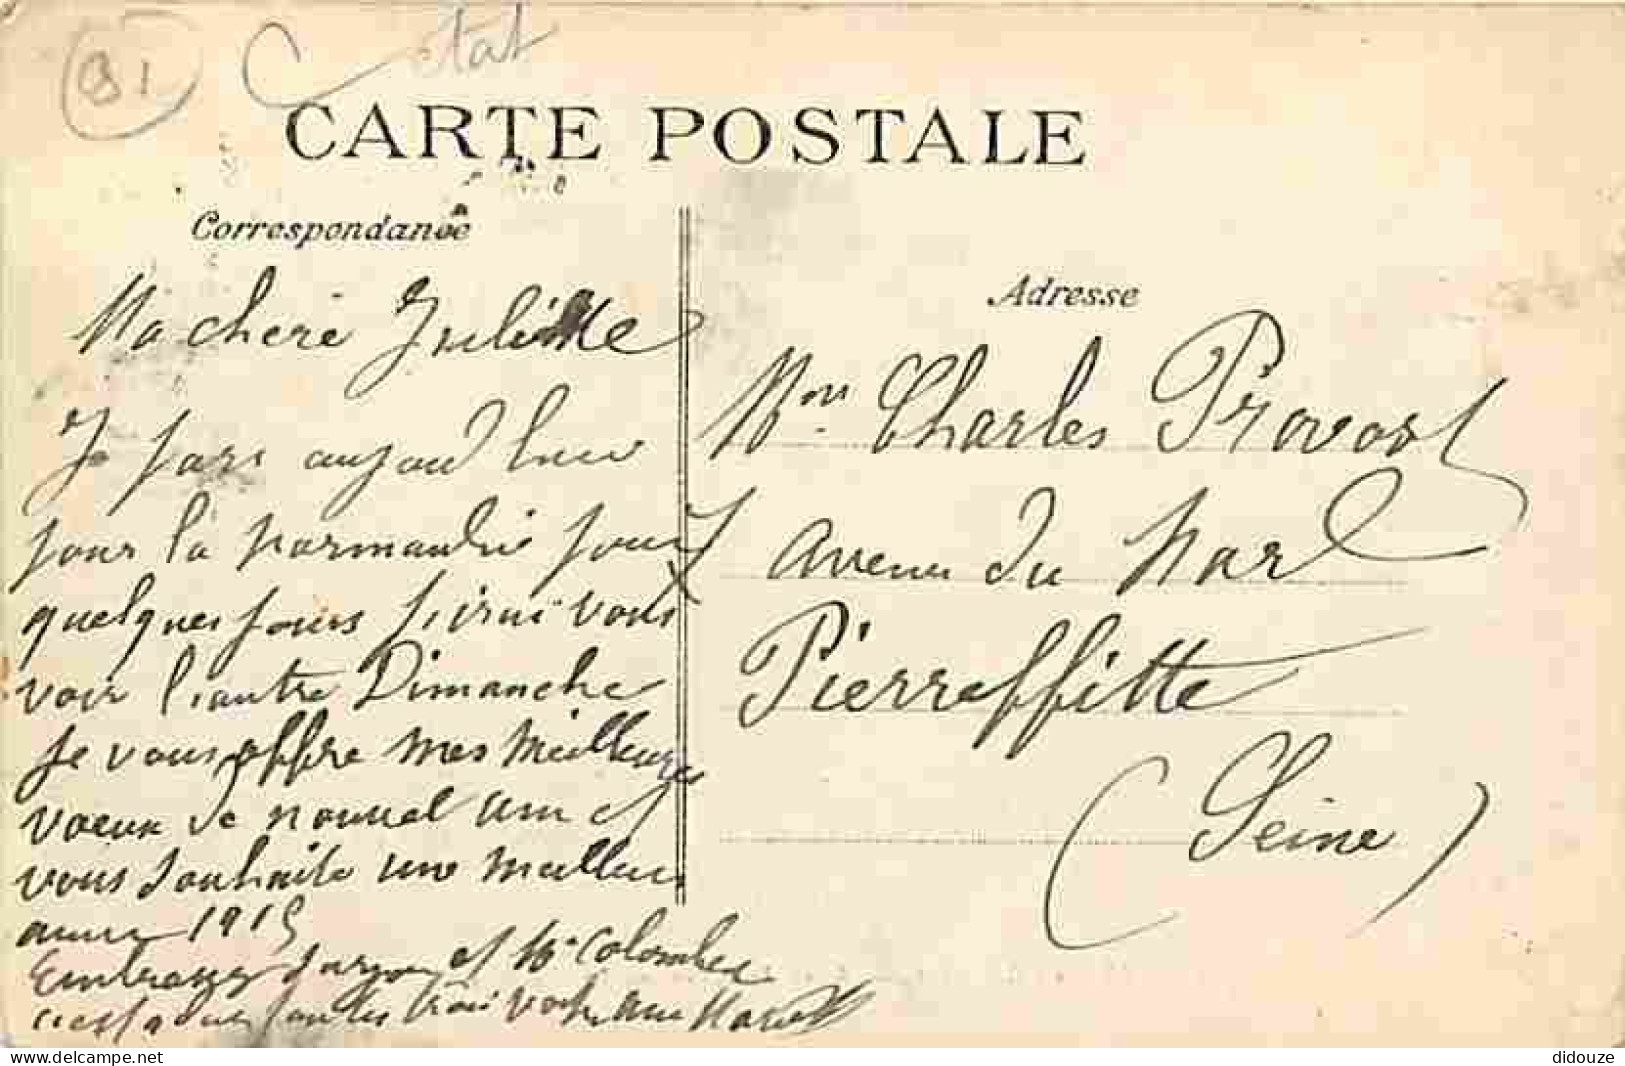 91
C état
CARTE POSTALE
Correspondance
Ma chere Juliette
Je pars aujourd hui
pour la normandie pour
quelques jours j'irai vous
voir l'autre Dimanche
Je vous offre mes meilleures
voeux de nouvel ann et
vous souhaite une meilleur
annee 1915
Embrassez et Me Colombe
toutes trois votre ami
Adresse
Mon Charles Provost
avenue du Nord
Pierreffitte
(Seine)
WWW.DELCAMPE.NET
didouze